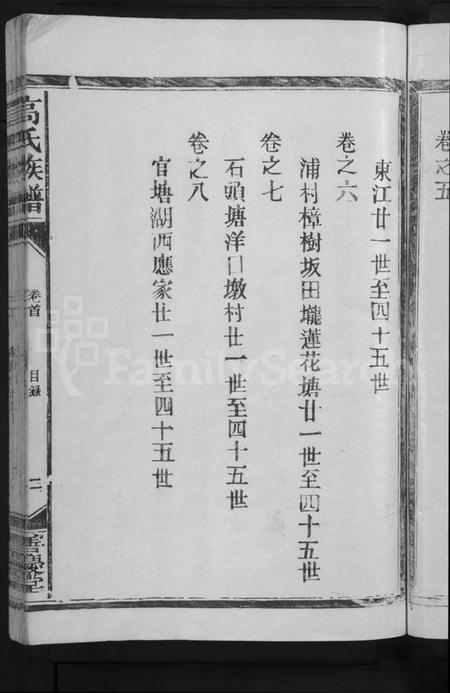 卷之五
東江廿一世至四十五世
卷之六
浦村樟樹坂田壠蓮花塘廿一世至四十五世
卷之七
石頭塘洋口墩村廿一世至四十五世
卷之八
官塘湖西應家廿一世至四十五世
高氏族譜
卷首
目錄
二
FamilySearch